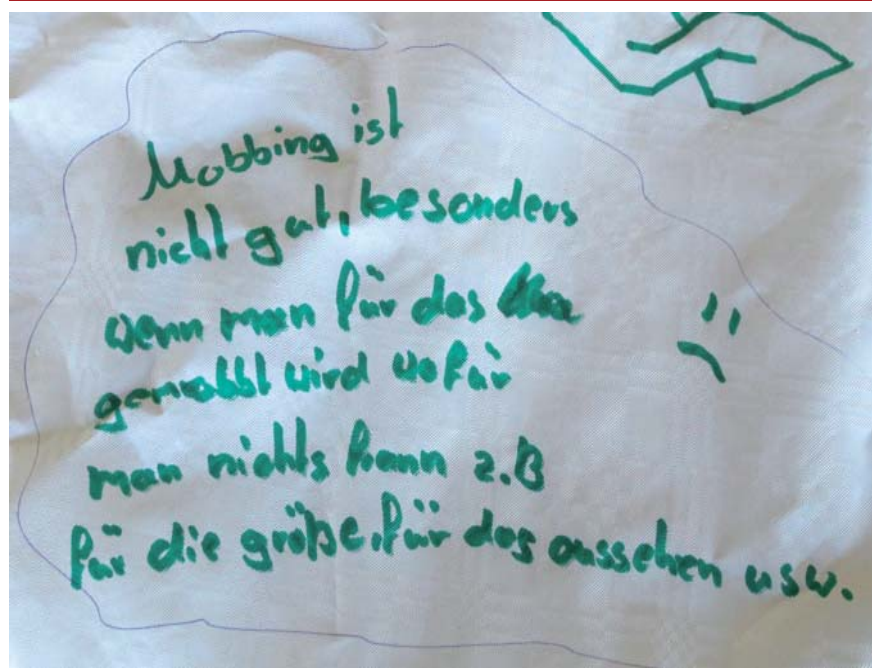 Mobbing ist
nicht gut, besonders
wenn man für das
gemobbt wird wofür
man nichts kann z.B
für die größe, für das aussehen usw.